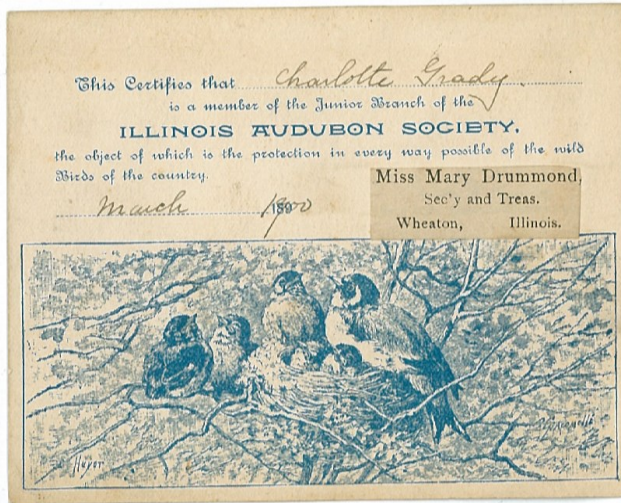 This Certifies that Charlotte Grady.
is a member of the Junior Branch of the
ILLINOIS AUDUBON SOCIETY,
the object of which is the protection in every way possible of the wild
Birds of the country.
Miss Mary Drummond,
Sec'y and Treas.
Wheaton, Illinois.
March 1900
Heyer